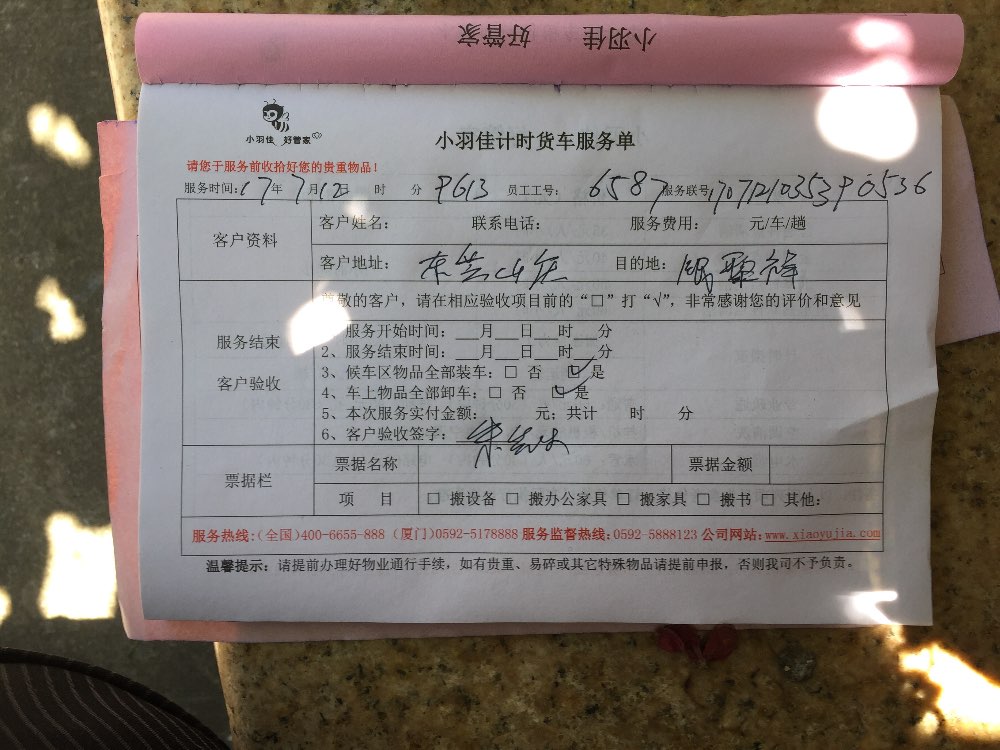 小羽佳 好管家
小羽佳 好管家
小羽佳计时货车服务单
请您于服务前收拾好您的贵重物品！
服务时间：17年 7月12日 时 分 P613 员工工号： 6587 服务联号：
客户资料
客户姓名： 联系电话： 服务费用： 元/车/趟
客户地址： 目的地：
服务结束
客户验收
尊敬的客户，请在相应验收项目前的“□”打“√”，非常感谢您的评价和意见
服务开始时间：___月___日___时___分
2、服务结束时间：___月___日___时___分
3、候车区物品全部装车：□ 否 ☑ 是
4、车上物品全部卸车：□ 否 ☑ 是
5、本次服务实付金额： 元；共计 时 分
6、客户验收签字：
票据栏
票据名称 票据金额
项 目 □ 搬设备 □ 搬办公家具 □ 搬家具 □ 搬书 □ 其他：
服务热线：(全国)400-6655-888 (厦门)0592-5178888 服务监督热线：0592-5888123 公司网站：www.xiaoyujia.com
温馨提示：请提前办理好物业通行手续，如有贵重、易碎或其它特殊物品请提前申报，否则我司不予负责。